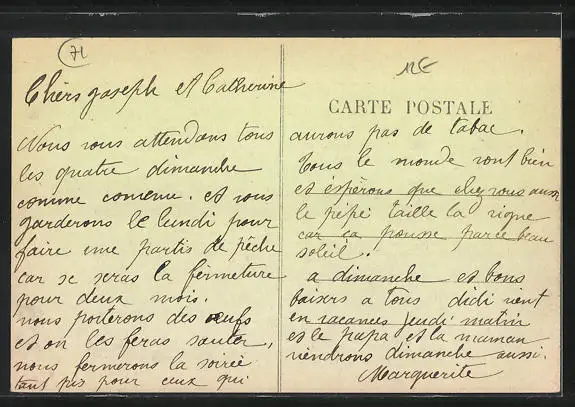 71
Chers joseph et Catherine
Nous vous attendons tous
les quatre dimanche
comme convenue. et vous
garderons le lundi pour
faire une partis de pêche
car se seras la fermeture
pour deux mois.
nous porterons des œufs
et on les feras sauter,
nous fermerons la soirée
tant pis pour ceux qui
CARTE POSTALE
aurons pas de tabac.
Tous le monde vont bien
et espérons que chez vous aussi
le pépé taille la vigne
car ca pousse par ce beau
soleil.
a dimanche et bons
baisers a tous didi vient
en vacances jeudi matin
et le papa et la maman
viendrons dimanche aussi.
Marguerite